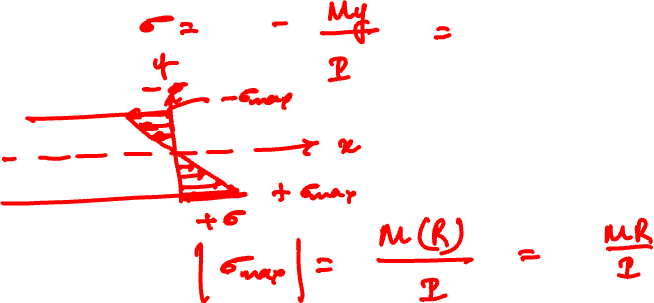 σ = - My/I =
y
-σ
-σmax
x
+σmax
+σ
|σmax| = M(R)/I = MR/I